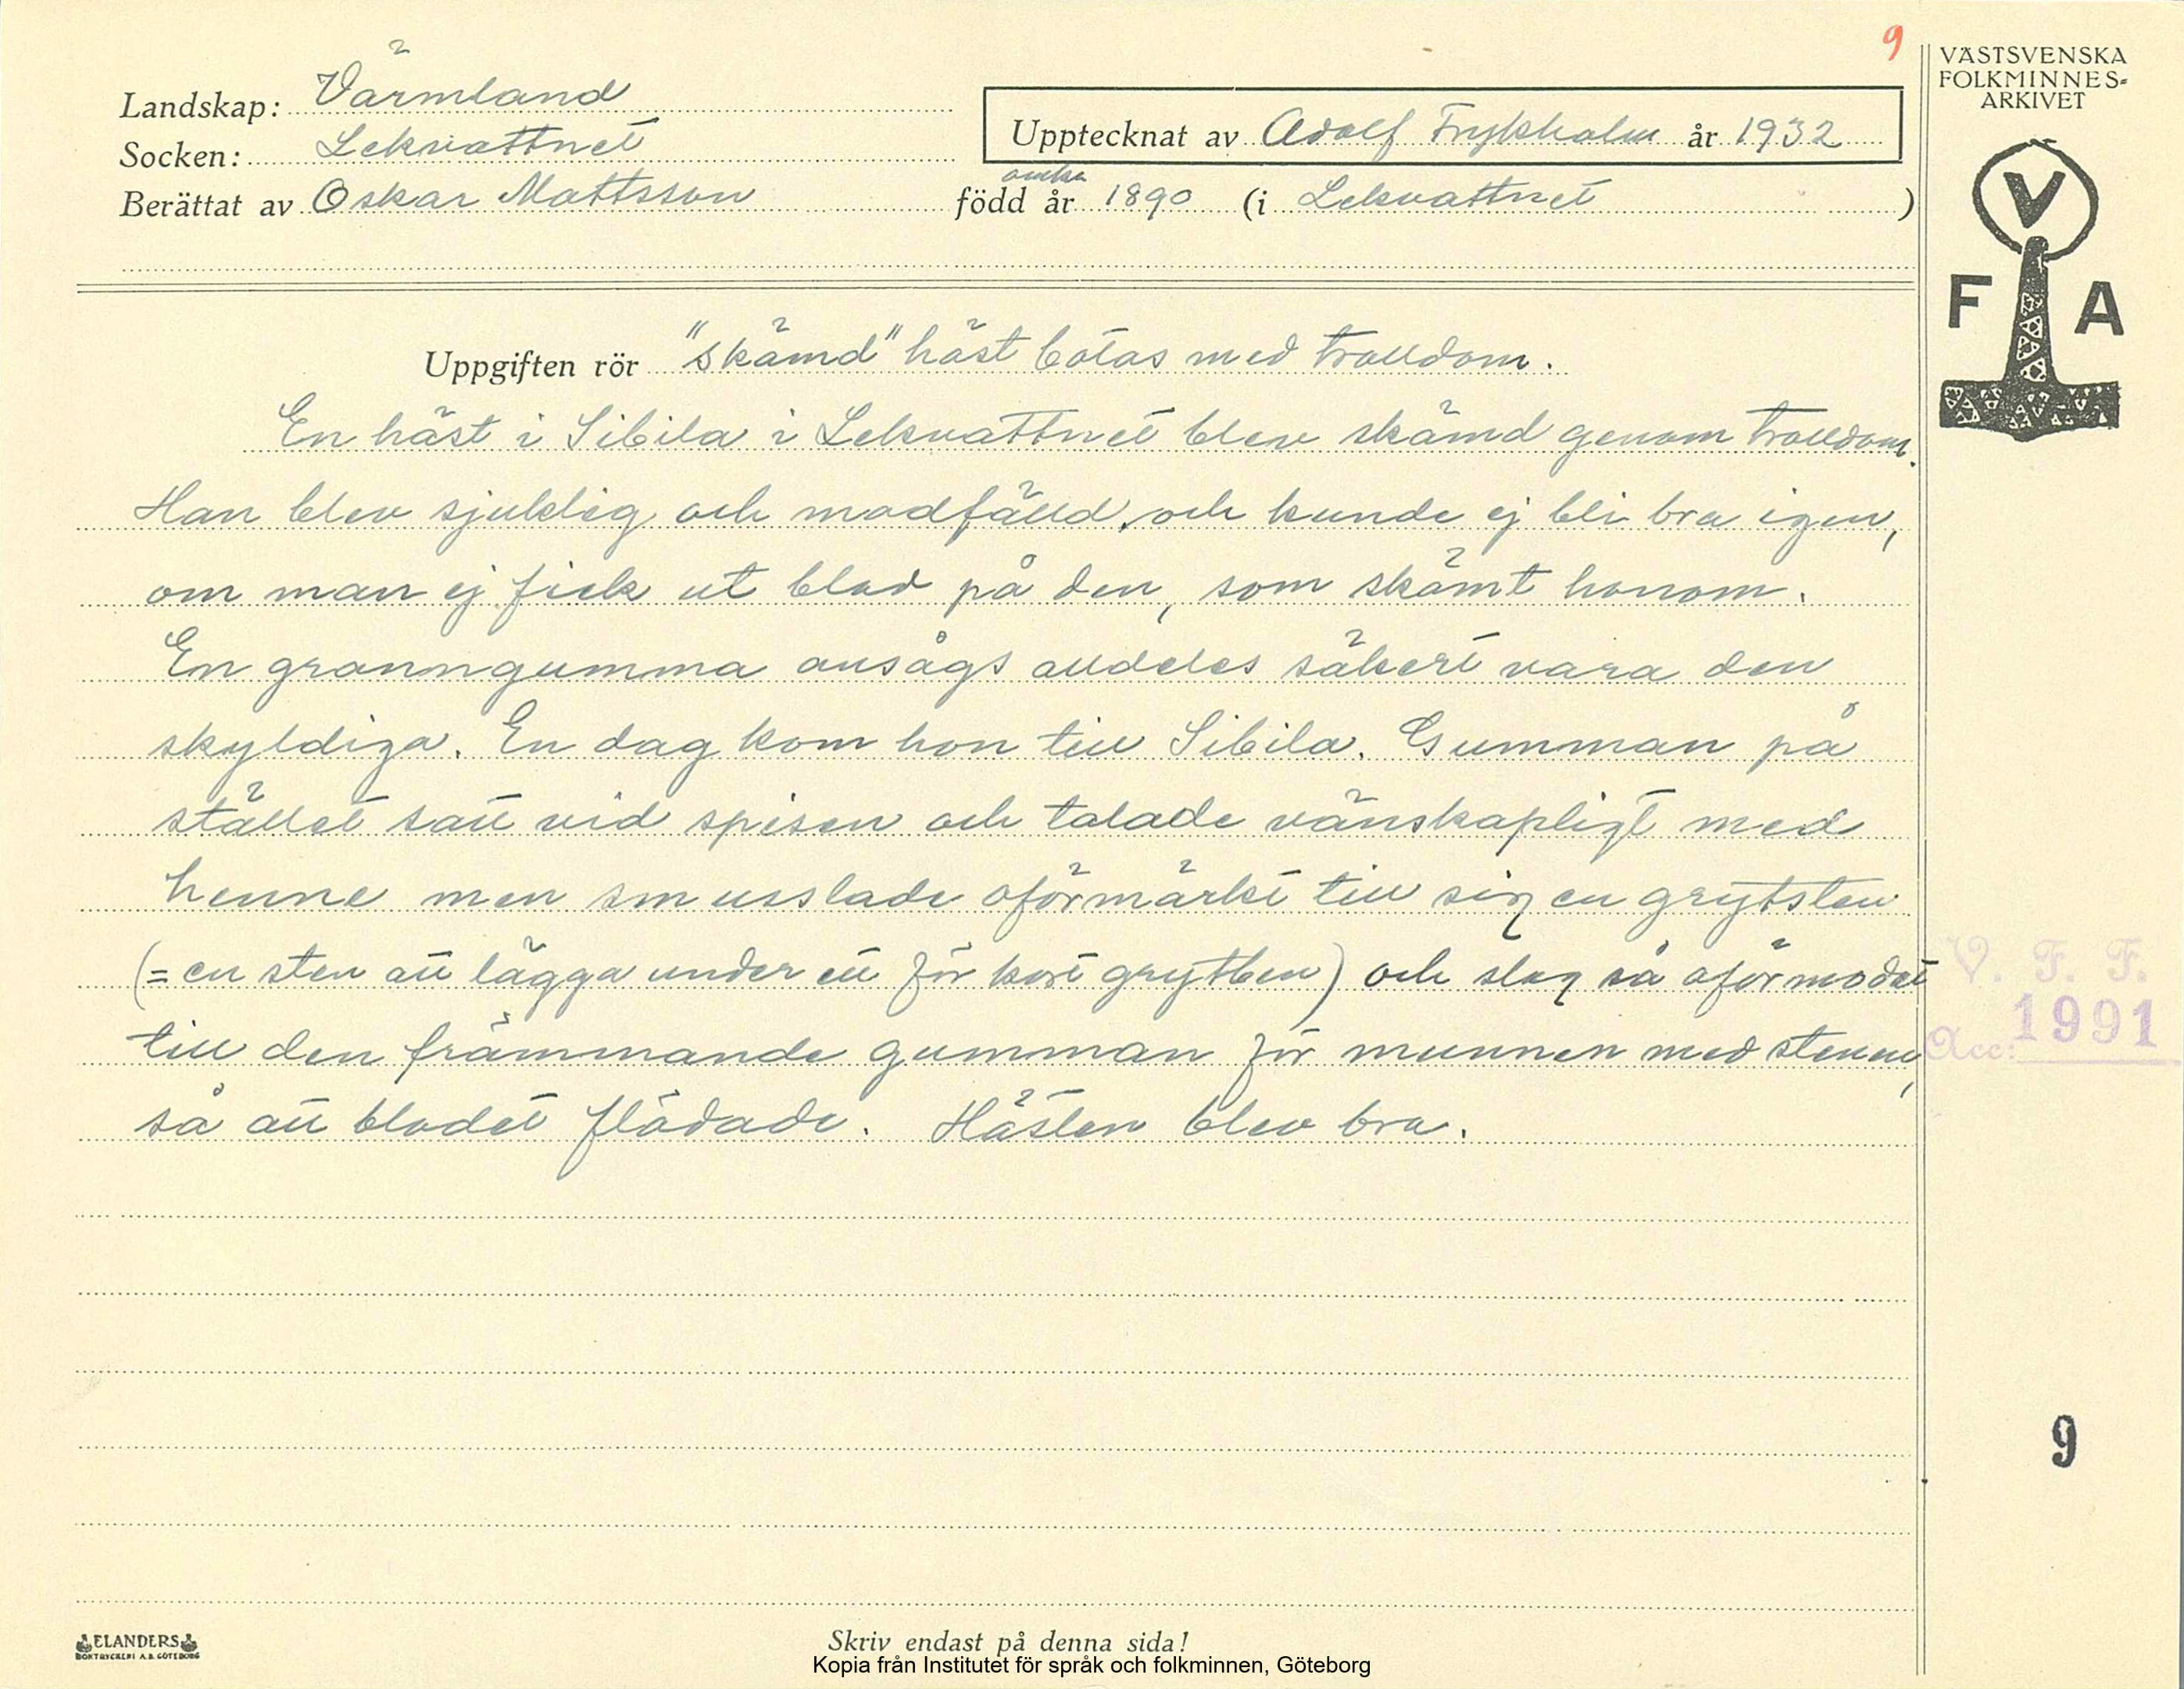 9
VÄSTSVENSKA
FOLKMINNES-
ARKIVET
Landskap: Värmland
Socken: Lekvattnet
Upptecknat av Adolf Frykholm år 1932
Berättat av Oskar Mattsson född år omkr 1890 (i Lekvattnet )
V
F A
Uppgiften rör "skämd" häst botas med trolldom.
En häst i Sibila i Lekvattnet blev skämd genom trolldom.
Han blev sjuklig och modfälld, och kunde ej bli bra igen,
om man ej fick ut blod på den, som skämt honom.
En granngumma ansågs alldeles säkert vara den
skyldiga. En dag kom hon till Sibila. Gumman på
stället satt vid spisen och talade vänskapligt med
henne men smusslade oförmärkt till sig en grytsten
(= en sten att lägga under ett för kort grytben) och slog så oförmodat
till den främmande gumman för munnen med stenen,
så att blodet flödade. Hästen blev bra.
V. F. F.
Acc: 1991
9
ELANDERS
BOKTRYCKERI A.B. GÖTEBORG
Skriv endast på denna sida!
Kopia från Institutet för språk och folkminnen, Göteborg